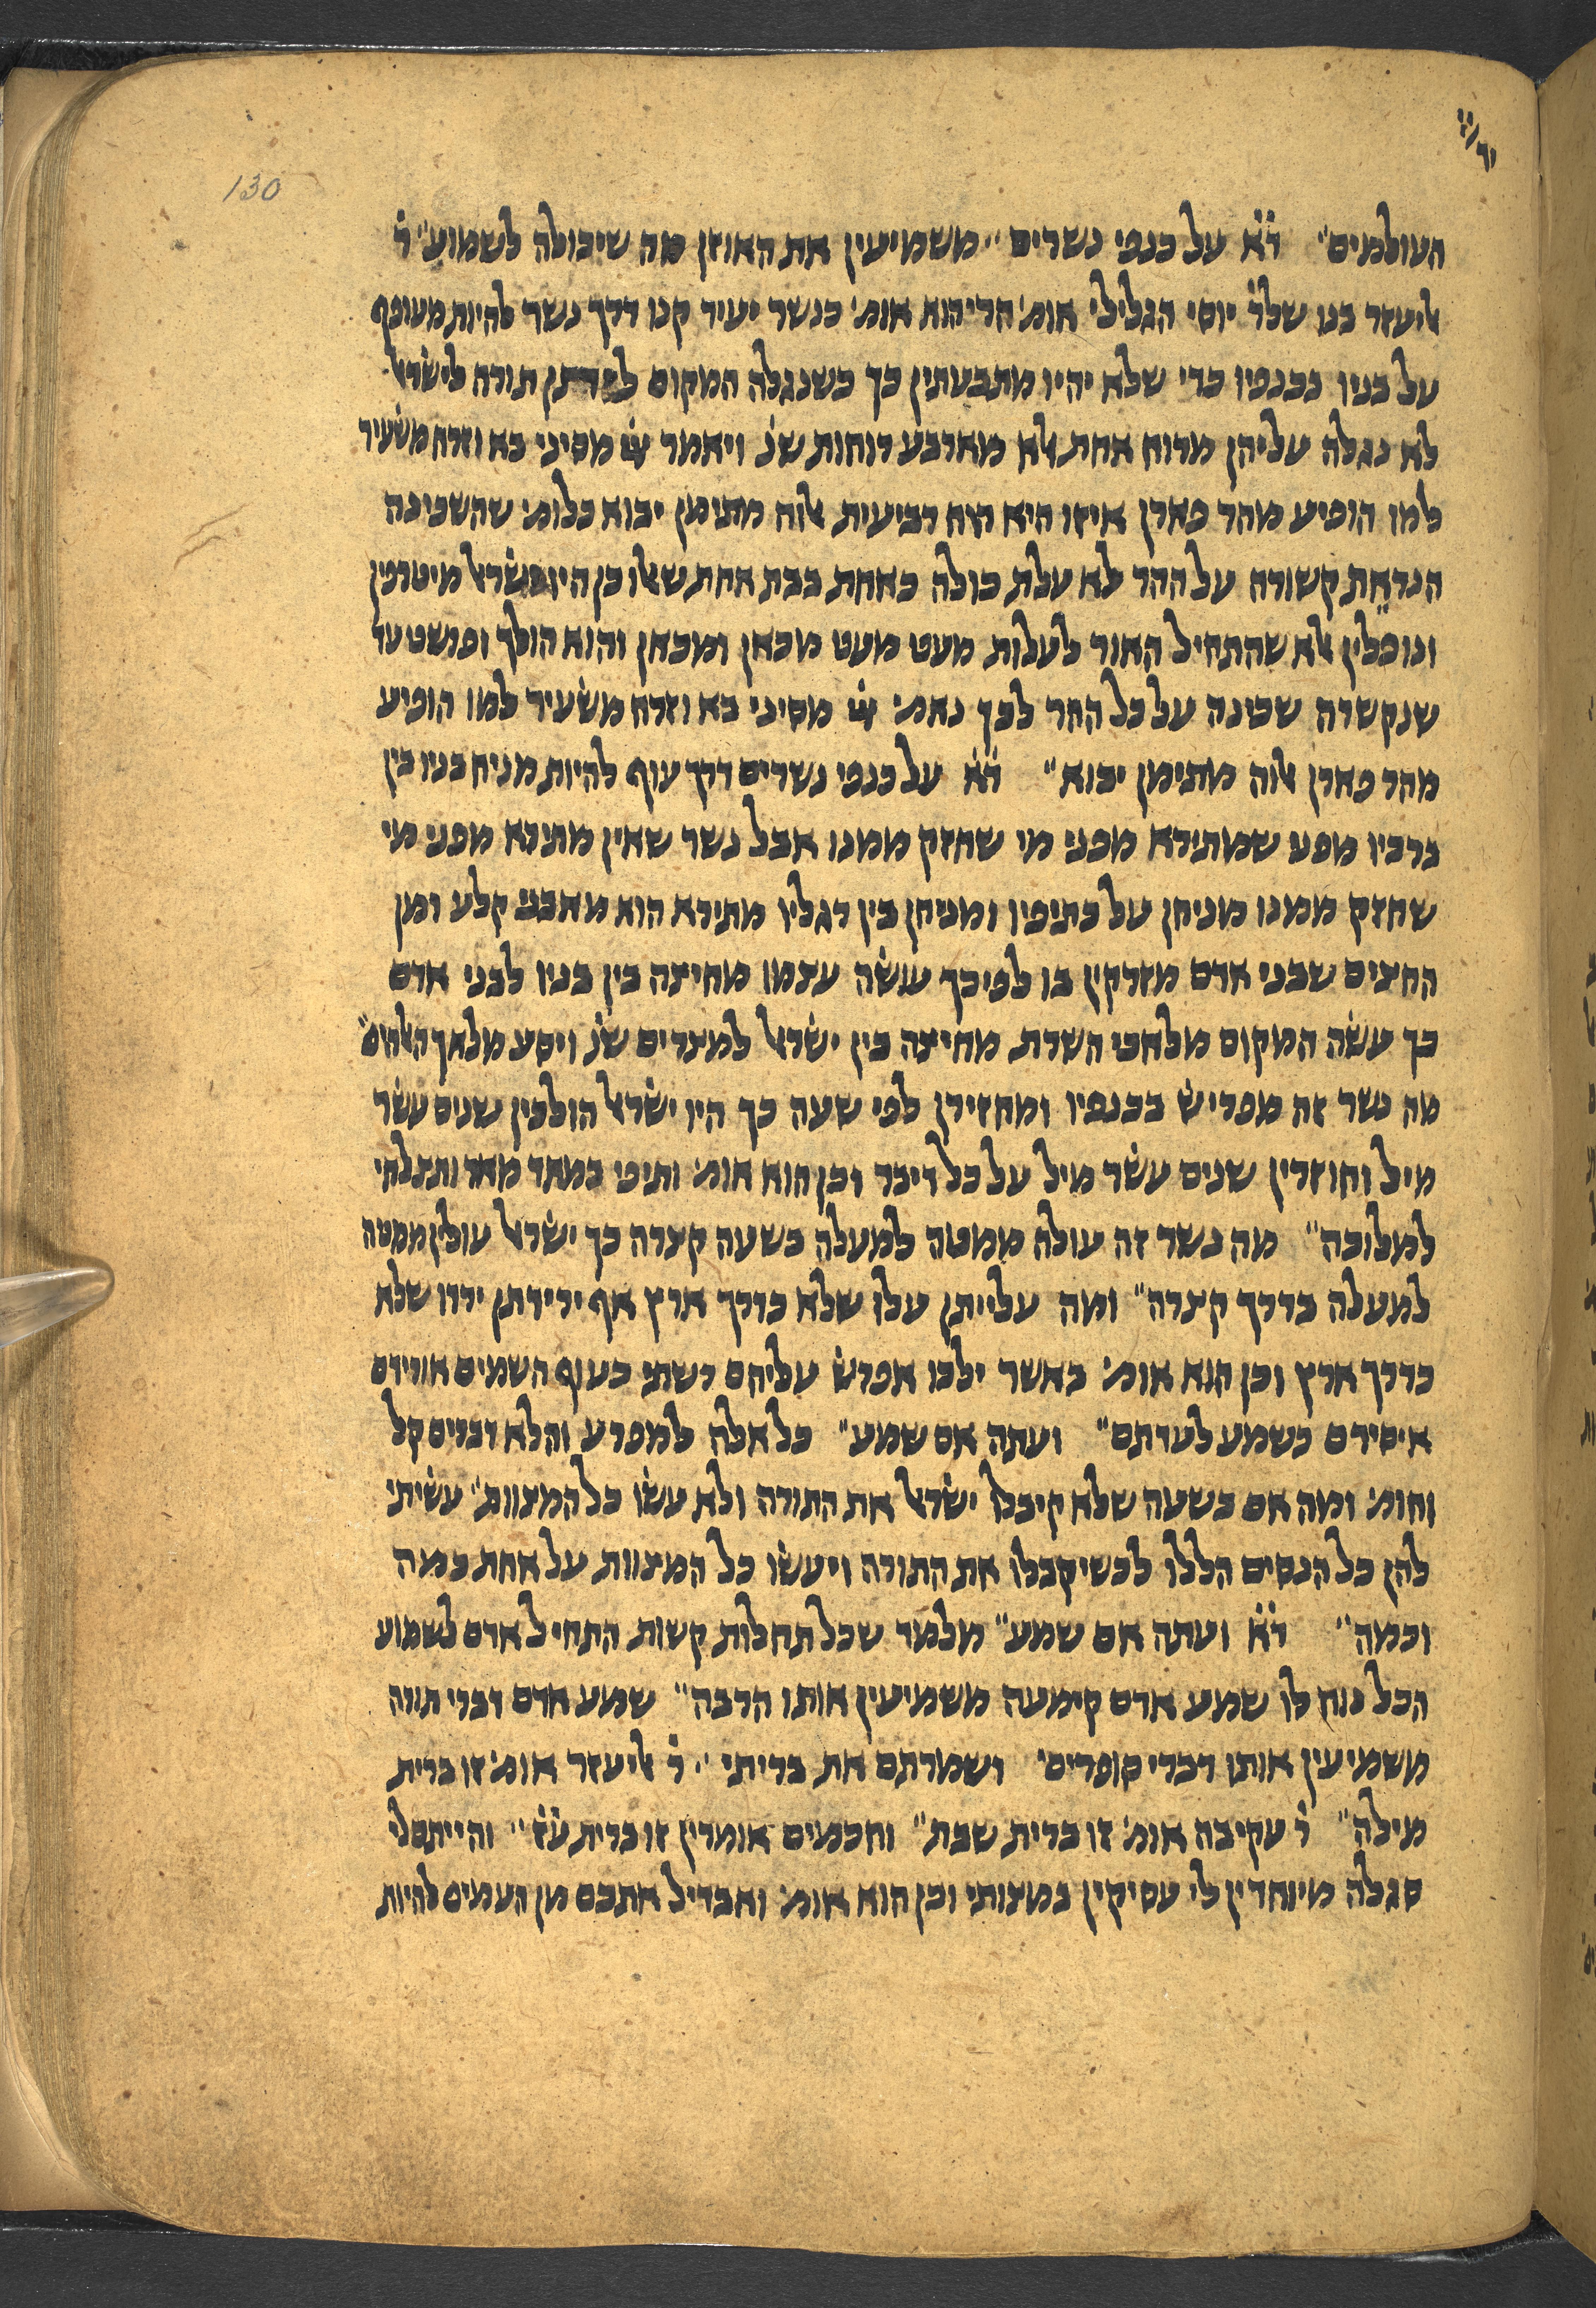 יתרו
130
העולמים״ ד̇א̇ על כנפי נשרים״ משמיעין את האוזן מה שיכולה לשמוע״ ר̇
אליעזר בנו שלר̇ יוסי הגלילי אומ׳ הרי הוא אומ׳ כנשר יעיר קנו דרך נשר להיות מעופף
על בניו בכנפיו כדי שלא יהיו מתבעתין כך כשנגלה המקום ליתן תורה לישראל
לא נגלה עליהן מרוח אחת אלא מארבע רוחות שנ̇ ויאמר ייי מסיני בא וזרח משעיר
למו הופיע מהר פארן איזו היא רוח רביעית אלוה מתימן יבוא כלומ׳ שהשכינה
הנראת קשורה על ההר לא עלת כולה כאחת בבת אחת שאלו כן היו ישראל מיטרפין
ונופלין אלא שהתחיל האור לעלות מעט מעט מכאן ומכאן והוא הולך ופושט עד
שנקשרה שכינה על כל ההר לכך נאמ׳ ייי מסיני בא וזרח משעיר למו הופיע
מהר פארן אלוה מתימן יבוא״ ד̇א̇ על כנפי נשרים דרך עוף להיות מניח בניו בין
ברכיו מפני שמתירא מפני מי שחזק ממנו אבל נשר שאין מתירא מפני מי
שחזק ממנו מניחן על כתיפיו ומניחן בין רגליו מתירא הוא מאבני קלע ומן
החצים שבני אדם מזרקין בו לפיכך עושה עצמו מחיצה בין בניו לבני אדם
כך עשה המקום מלאכי השרת מחיצה בין ישראל למצרים שנ̇ ויסע מלאך האלהים״
מה נשר זה מפריש בכנפיו ומחזירן לפי שעה כך היו ישראל הולכין שנים עשר
מיל וחוזרין שנים עשר מיל על כל דיבר וכן הוא אומ׳ ותיפי במאד מאד ותצלחי
למלוכה״ מה נשר זה עולה ממטה למעלה בשעה קצרה כך ישראל עולין ממטה
למעלה בדרך קצרה״ ומה עלייתן עלו שלא כדרך ארץ אף ירידתן ירדו שלא
כדרך ארץ וכן הוא אומ׳ כאשר ילכו אפרש עליהם רשתי כעוף השמים אורידם
איסירם כשמע לעדתם״ ועתה אם שמע״ כל אלה למפרע והלא דברים קל
וחומ׳ ומה אם בשעה שלא קיבלו ישראל את התורה ולא עשו כל המצוות״ עשיתי
להן כל הנסים הללו לכשיקבלו את התורה ויעשו כל המצוות על אחת כמה
וכמה״ ד̇א̇ ועתה אם שמע״ מלמד שכל תחלות קשות התחיל אדם לשמוע
הכל נוח לו שמע אדם קימעה משמיעין אותו הרבה״ שמע אדם דברי תורה
משמיעין אותו דברי סופרים״ ושמרתם את בריתי״ ר̇ אליעזר אומ׳ זו ברית
מילה״ ר̇ עקיבה אומ׳ זו ברית שבת״ וחכמים אומרין זו ברית ע̇ז̇״ והייתם לי
סגלה מיוחדין לי עסיקין במצותי וכן הוא אומ׳ ואבדיל אתכם מן העמים להיות